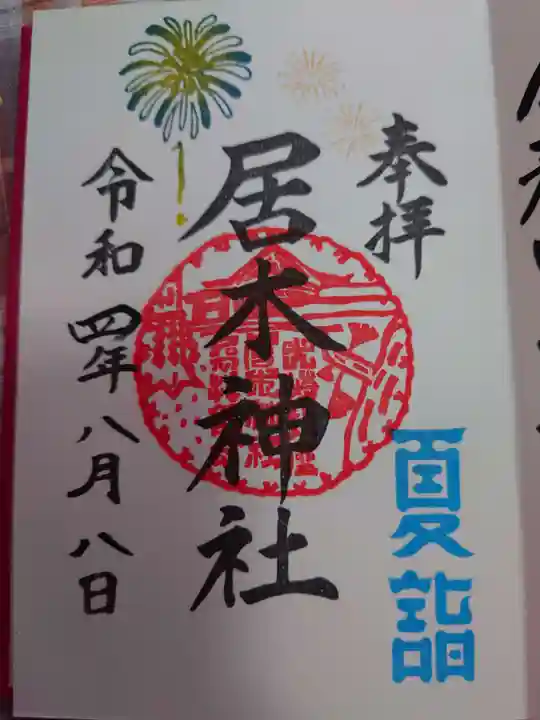 奉拝
夏詣
居木神社
令和四年八月八日